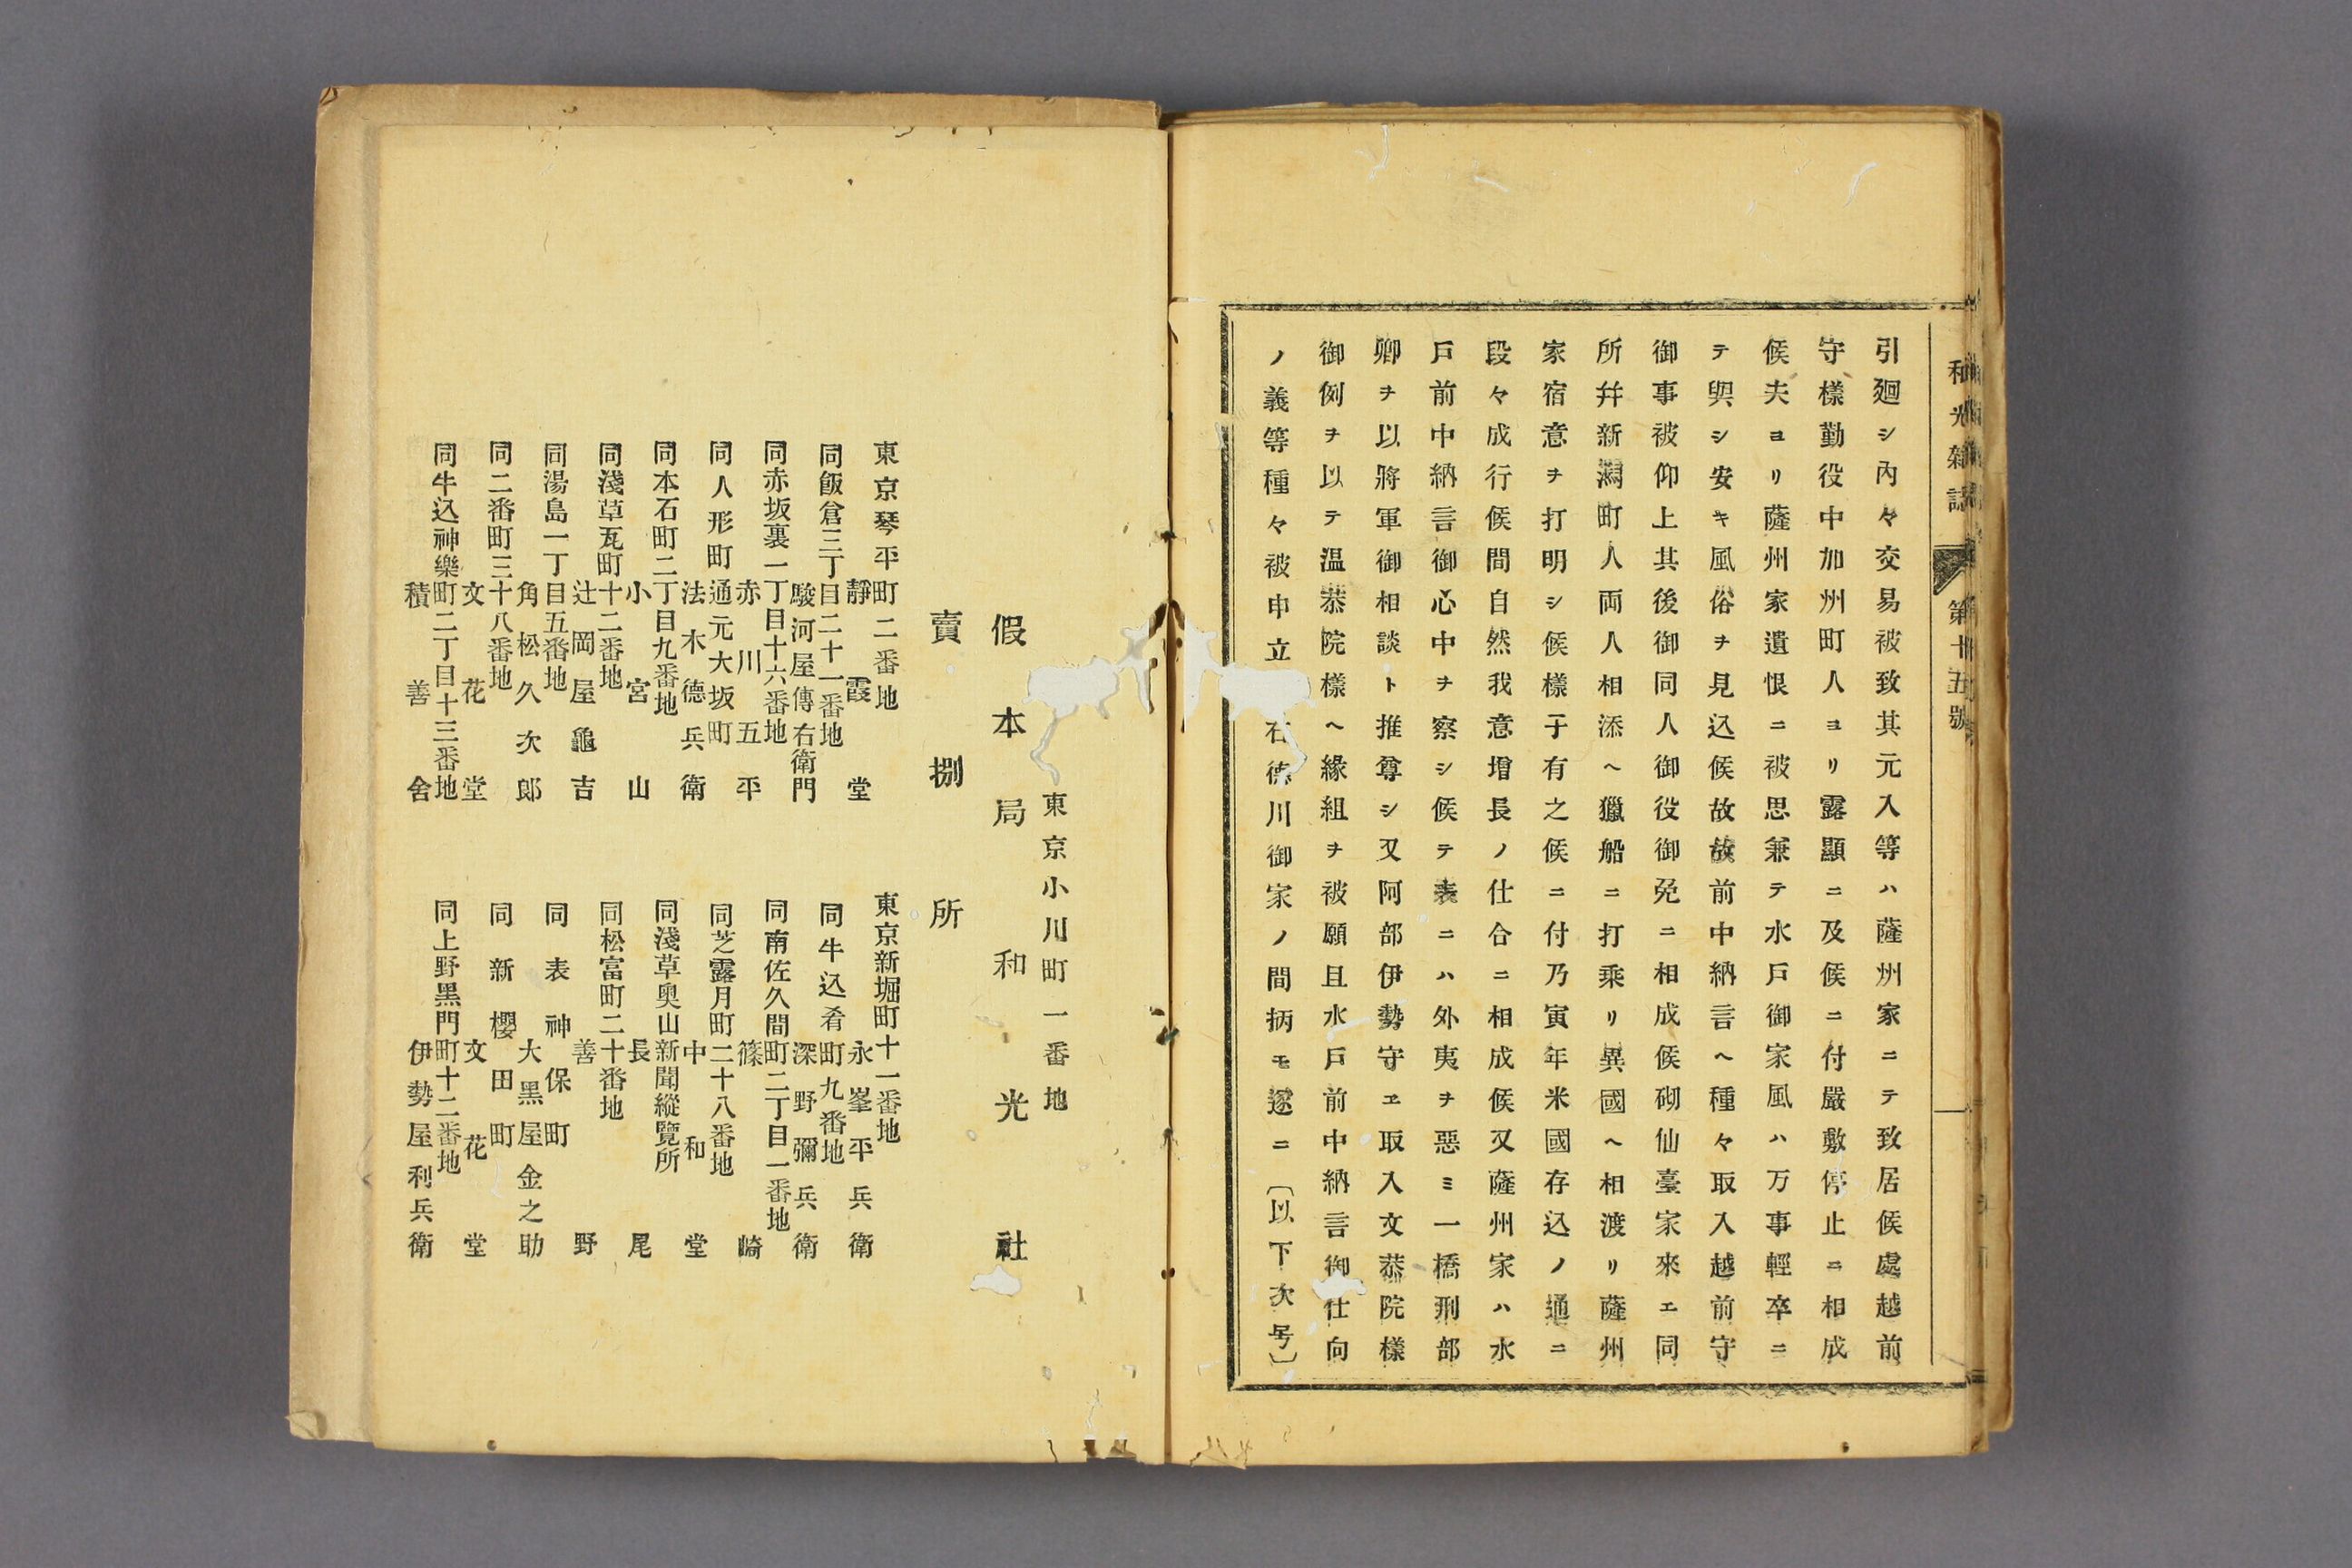 和光雜誌 第十五號
引廻シ內々交易被致其元入等ハ薩州家ニテ致居候處越前
守樣勤役中加州町人ヨリ露顯ニ及候ニ付嚴敷停止ニ相成
候夫ヨリ薩州家遺恨ニ被思兼テ水戶御家風ハ万事輕卒ニ
テ與シ安キ風俗ヲ見込候故故前中納言ヘ種々取入越前守
御事被仰上其後御同人御役御免ニ相成候砌仙臺家來エ同
所幷新瀉町人両人相添ヘ獵船ニ打乘リ異國ヘ相渡リ薩州
家宿意ヲ打明シ候樣子有之候ニ付乃寅年米國存込ノ通ニ
段々成行候間自然我意增長ノ仕合ニ相成候又薩州家ハ水
戶前中納言御心中ヲ察シ候テ表ニハ外夷ヲ惡ミ一橋刑部
卿ヲ以將軍御相談ト推尊シ又阿部伊勢守ヱ取入文恭院樣
御例ヲ以テ温恭院樣ヘ緣組ヲ被願且水戶前中納言御仕向
ノ義等種々被申立右德川御家ノ間柄モ遂ニ〔以下次号〕
東京小川町一番地
假本局 和光社
賣捌所
東京琴平町二番地
靜霞堂
同飯倉三丁目二十一番地
駿河屋傳右衛門
同赤坂裏一丁目十六番地
赤川五平
同人形町通元大坂町
法木德兵衛
同本石町二丁目九番地
小宮山
同淺草瓦町十二番地
辻岡屋龜吉
同湯島一丁目五番地
角松久次郎
同二番町三十八番地
文花堂
同牛込神樂町二丁目十三番地
積善舍
東京新堀町十一番地
永峯平兵衛
同牛込肴町九番地
深野彌兵衛
同南佐久間町二丁目一番地
篠崎
同芝露月町二十八番地
中和堂
同淺草奧山新聞縱覽所
長尾
同松富町二十番地
善野
同表神保町
大黑屋金之助
同新櫻田町
文花堂
同上野黑門町十二番地
伊勢屋利兵衛